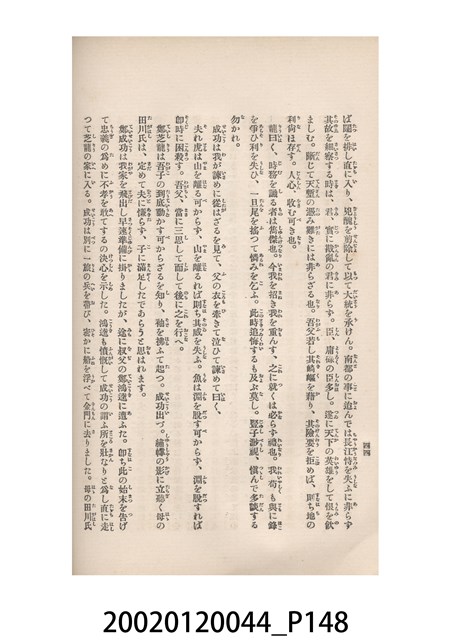 四四
ば闘を排し直に入り、兇醜を剪除して以て大統を承けん。南都の事に迨んでは長江恃を失ふに非らず
其故を細察する時は、君、實に戡亂の君に非らず。臣、庸碌の臣多し。遂に天下の英雄をして恨を飲
ましむ。斷じて天塹の憑み難きには非らざる也。吾父若し其崎嶇を藉り、其險要を拒めば、則ち地の
利尚ほ存す。人心、收む可き也。
龍曰く、時務を識る者は儁傑也。今我を招き我を重んず、之に就くは必らず禮也。我苟も與に鋒
を爭ひ利を失ひ、一旦尾を搖つて憐みを乞ふ。此時追悔するも及ぶ莫し。豎子渺視、愼んで多談する
勿かれ。
成功は我が諫めに從はざるを見て、父の衣を牽きて泣ひて諫めて曰く、
夫れ虎は山を離る可からず、山を離るれば則ち其威を失ふ。魚は淵を脱す可からず、淵を脱すれば
卽時に困殺す。吾父、當に三思して而して後に之を行へ。
鄭芝龍は吾子の到底動かす可からざるを知り、袖を拂て起つ。成功出づ。繡幪の影に立聽く母の
田川氏は、定めて夫に慊らず、子に滿足したであらうと思はれます。
鄭成功は我家を飛出し早速準備に掛りましたが、途に叔父の鄭鴻逵に遭ふた。卽ち此の始末を告げ
て忠義の爲めに不孝を敢てするの決心を示した。鴻逵も憤慨して成功の謂ふ所を壯なりと爲し直に走
つて芝龍の家に入る。成功は別に一旅の兵を帶び、密かに船を浮べて金門に去りました。母の田川氏
20020120044_P148